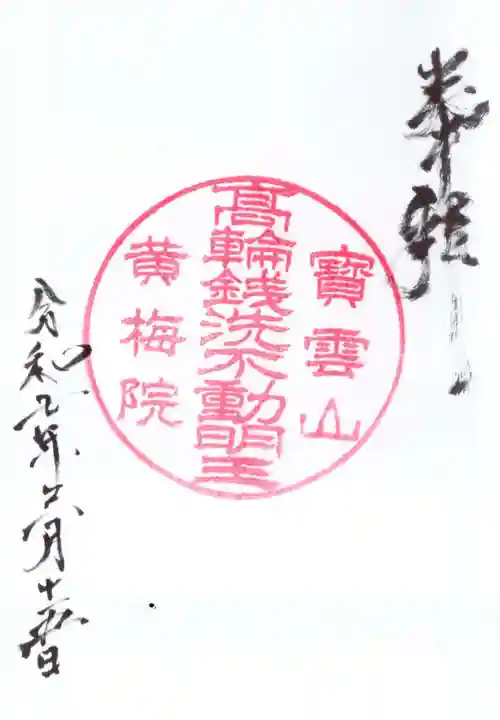 奉拝
寶雲山
髙輪銭洗不動明王
黄梅院
令和元年六月十五日